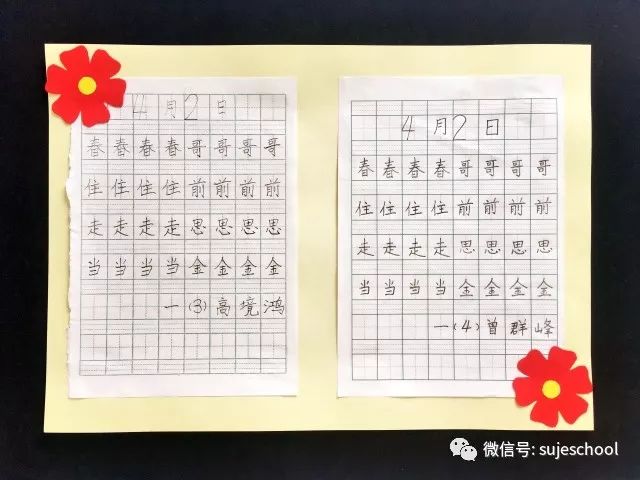 4月2日
春春春春哥哥哥哥
住住住住前前前前
走走走走思思思思
当当当当金金金金
一(3)高境鸿
4月2日
春春春春哥哥哥哥
住住住住前前前前
走走走走思思思思
当当当当金金金金
一(4)曾群峰
微信号: sujeschool